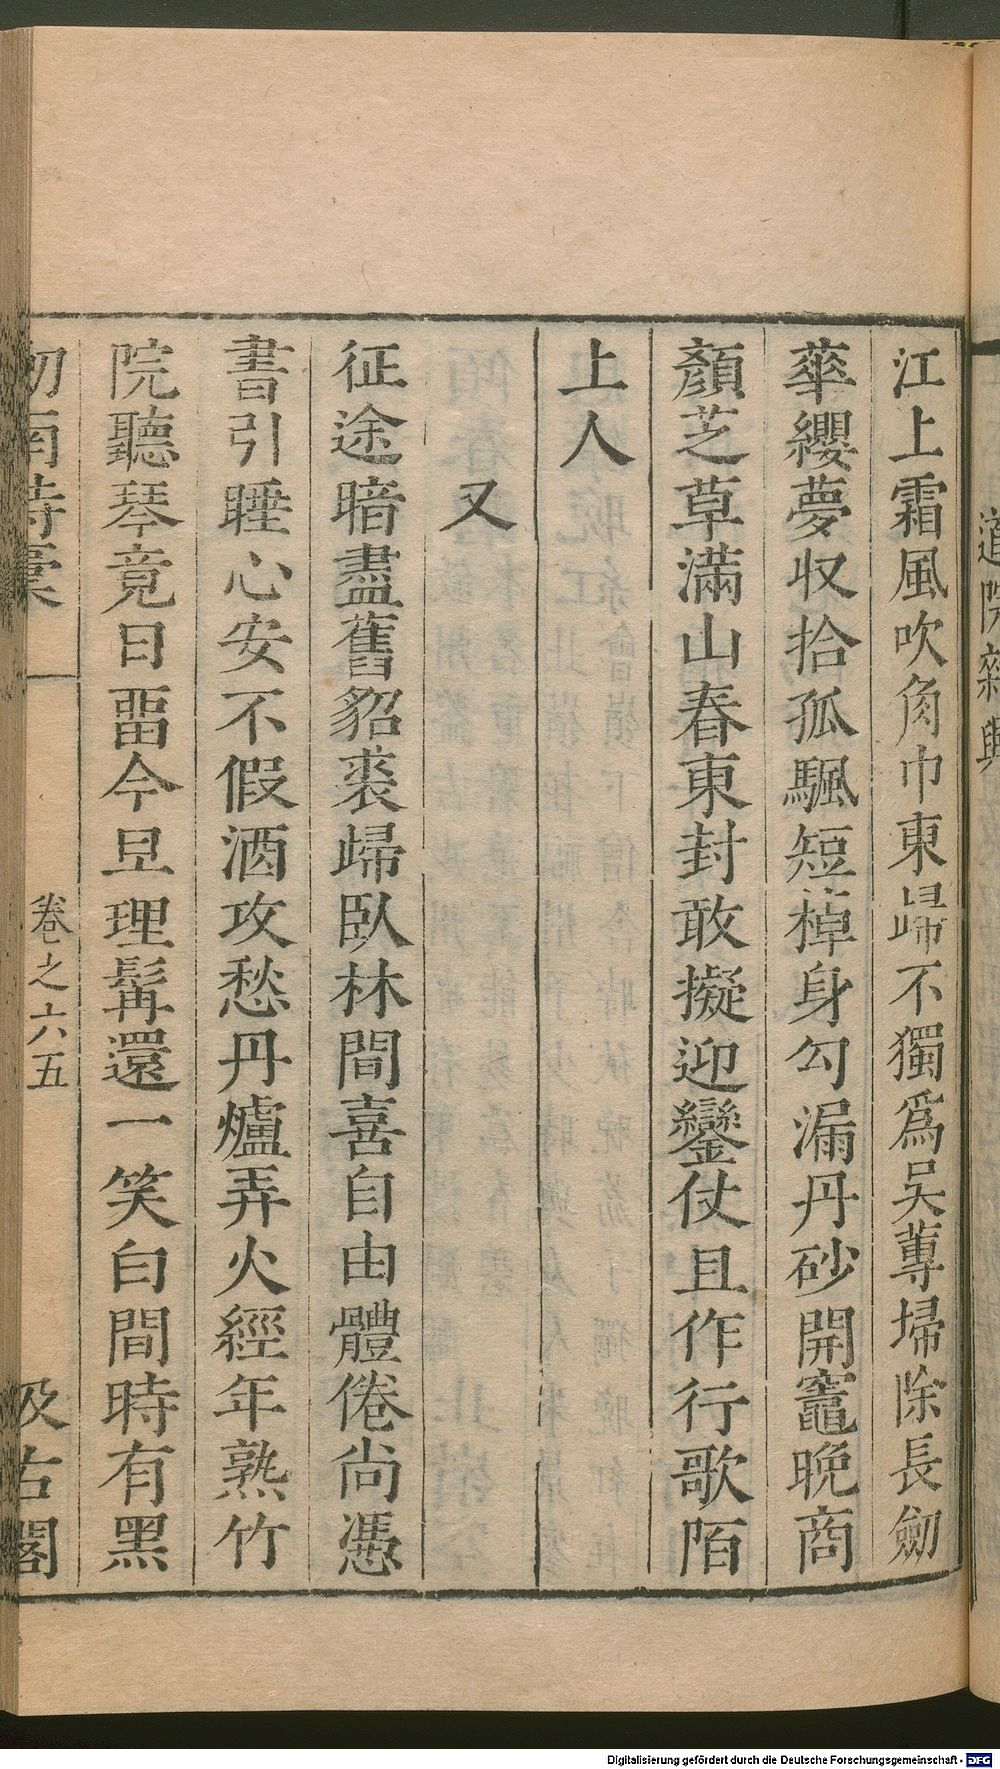 道院雜興
江上霜風吹角巾東歸不獨爲吳蓴埽除長劒
華纓夢収拾孤颿短棹身勾漏丹砂開竈晚商
顏芝草滿山春東封敢擬迎鑾仗且作行歌陌
上人
又
征途暗盡舊貂裘歸臥林間喜自由體倦尚憑
書引睡心安不假酒攻愁丹爐弄火經年熟竹
院聽琴竟日畱今旦理髯還一笑白間時有黑
劒南詩稾 卷之六五 汲古閣
Digitalisierung gefördert durch die Deutsche Forschungsgemeinschaft - DFG